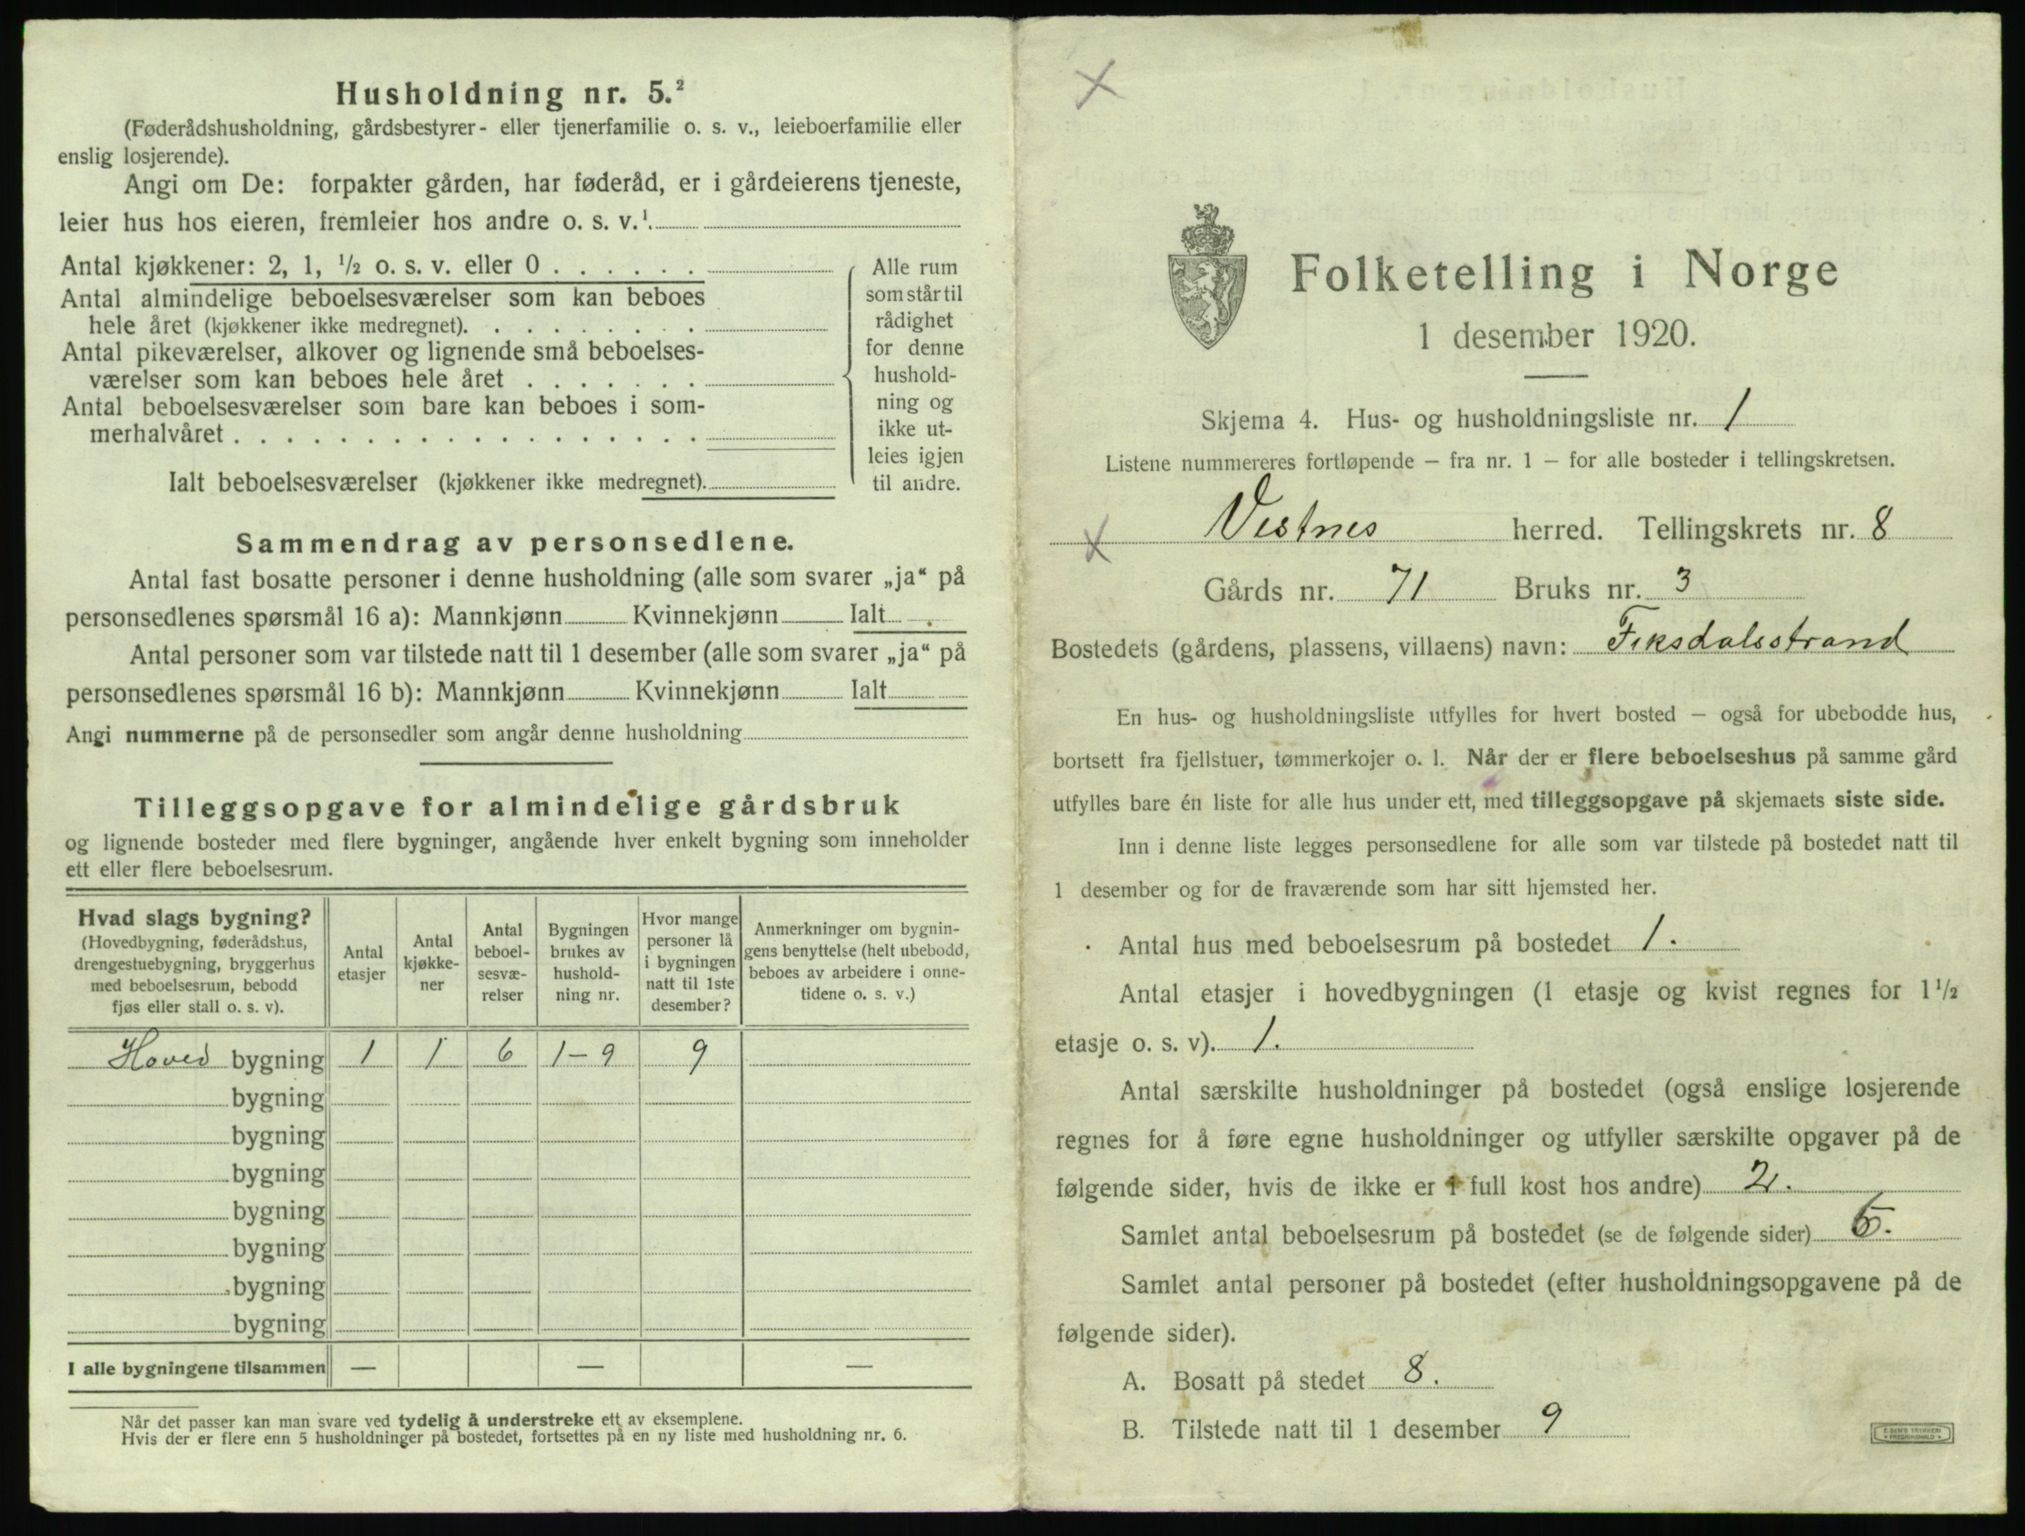 Husholdning nr. 5.²
(Føderådshusholdning, gårdsbestyrer- eller tjenerfamilie o. s. v., leieboerfamilie eller
enslig losjerende).
Angi om De: forpakter gården, har føderåd, er i gårdeierens tjeneste,
leier hus hos eieren, fremleier hos andre o. s. v.¹
Antal kjøkkener: 2, 1, ½ o. s. v. eller 0 . . . . . .
Antal almindelige beboelsesværelser som kan beboes
hele året (kjøkkener ikke medregnet). . . . . . . . .
Antal pikeværelser, alkover og lignende små beboelses-
værelser som kan beboes hele året . . . . . . .
Antal beboelsesværelser som bare kan beboes i som-
merhalvåret . . . . . . . . . . . . . . . . . .
Ialt beboelsesværelser (kjøkkener ikke medregnet).
Alle rum
som står til
rådighet
for denne
hushold-
ning og
ikke ut-
leies igjen
til andre.
Sammendrag av personsedlene.
Antal fast bosatte personer i denne husholdning (alle som svarer „ja“ på
personsedlenes spørsmål 16 a): Mannkjønn Kvinnekjønn Ialt
Antal personer som var tilstede natt til 1 desember (alle som svarer „ja“ på
personsedlenes spørsmål 16 b): Mannkjønn Kvinnekjønn Ialt
Angi nummerne på de personsedler som angår denne husholdning
Tilleggsopgave for almindelige gårdsbruk
og lignende bosteder med flere bygninger, angående hver enkelt bygning som inneholder
ett eller flere beboelsesrum.
Hvad slags bygning?
(Hovedbygning, føderådshus,
drengestuebygning, bryggerhus
med beboelsesrum, bebodd
fjøs eller stall o. s. v).
Antal
etasjer
Antal
kjøkke-
ner
Antal
beboel-
sesvæ-
relser
Bygningen
brukes av
hushold-
ning nr.
Hvor mange
personer lå
i bygningen
natt til 1ste
desember?
Anmerkninger om bygnin-
gens benyttelse (helt ubebodd,
beboes av arbeidere i onne-
tidene o. s. v.)
Hoved bygning 1 1 6 1-9 9
bygning
bygning
bygning
bygning
bygning
bygning
bygning
I alle bygningene tilsammen — — —
Når det passer kan man svare ved tydelig å understreke ett av eksemplene.
Hvis der er flere enn 5 husholdninger på bostedet, fortsettes på en ny liste med husholdning nr. 6.
Folketelling i Norge
1 desember 1920.
Skjema 4. Hus- og husholdningsliste nr. 1
Listene nummereres fortløpende – fra nr. 1 – for alle bosteder i tellingskretsen.
Vestnes herred. Tellingskrets nr. 8
Gårds nr. 71 Bruks nr. 3
Bostedets (gårdens, plassens, villaens) navn: Fiksdalsstrand
En hus- og husholdningsliste utfylles for hvert bosted – også for ubebodde hus,
bortsett fra fjellstuer, tømmerkojer o. l. Når der er flere beboelseshus på samme gård
utfylles bare én liste for alle hus under ett, med tilleggsopgave på skjemaets siste side.
Inn i denne liste legges personsedlene for alle som var tilstede på bostedet natt til
1 desember og for de fraværende som har sitt hjemsted her.
Antal hus med beboelsesrum på bostedet 1.
Antal etasjer i hovedbygningen (1 etasje og kvist regnes for 1½
etasje o. s. v). 1.
Antal særskilte husholdninger på bostedet (også enslige losjerende
regnes for å føre egne husholdninger og utfyller særskilte opgaver på de
følgende sider, hvis de ikke er i full kost hos andre) 2.
Samlet antal beboelsesrum på bostedet (se de følgende sider)
Samlet antal personer på bostedet (efter husholdningsopgavene på de
følgende sider).
A. Bosatt på stedet 8.
B. Tilstede natt til 1 desember 9